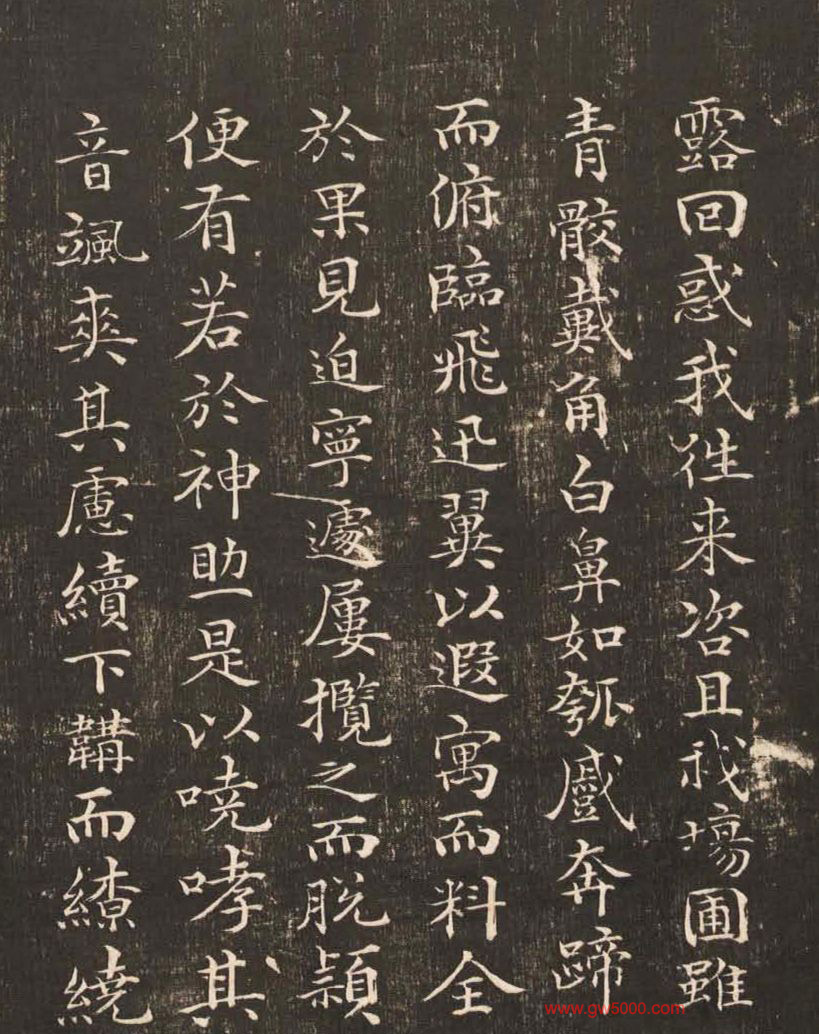 露回惑我往来咨且我場圃雖
青骹戴角白鼻如瓠戲奔蹄
而俯臨飛迅翼以遐寓而料全
於果見迫寧遽屢攬之而脫穎
便有若於神助是以哮其
音颯爽其慮續下韝而繚繞
www.gw5000.com